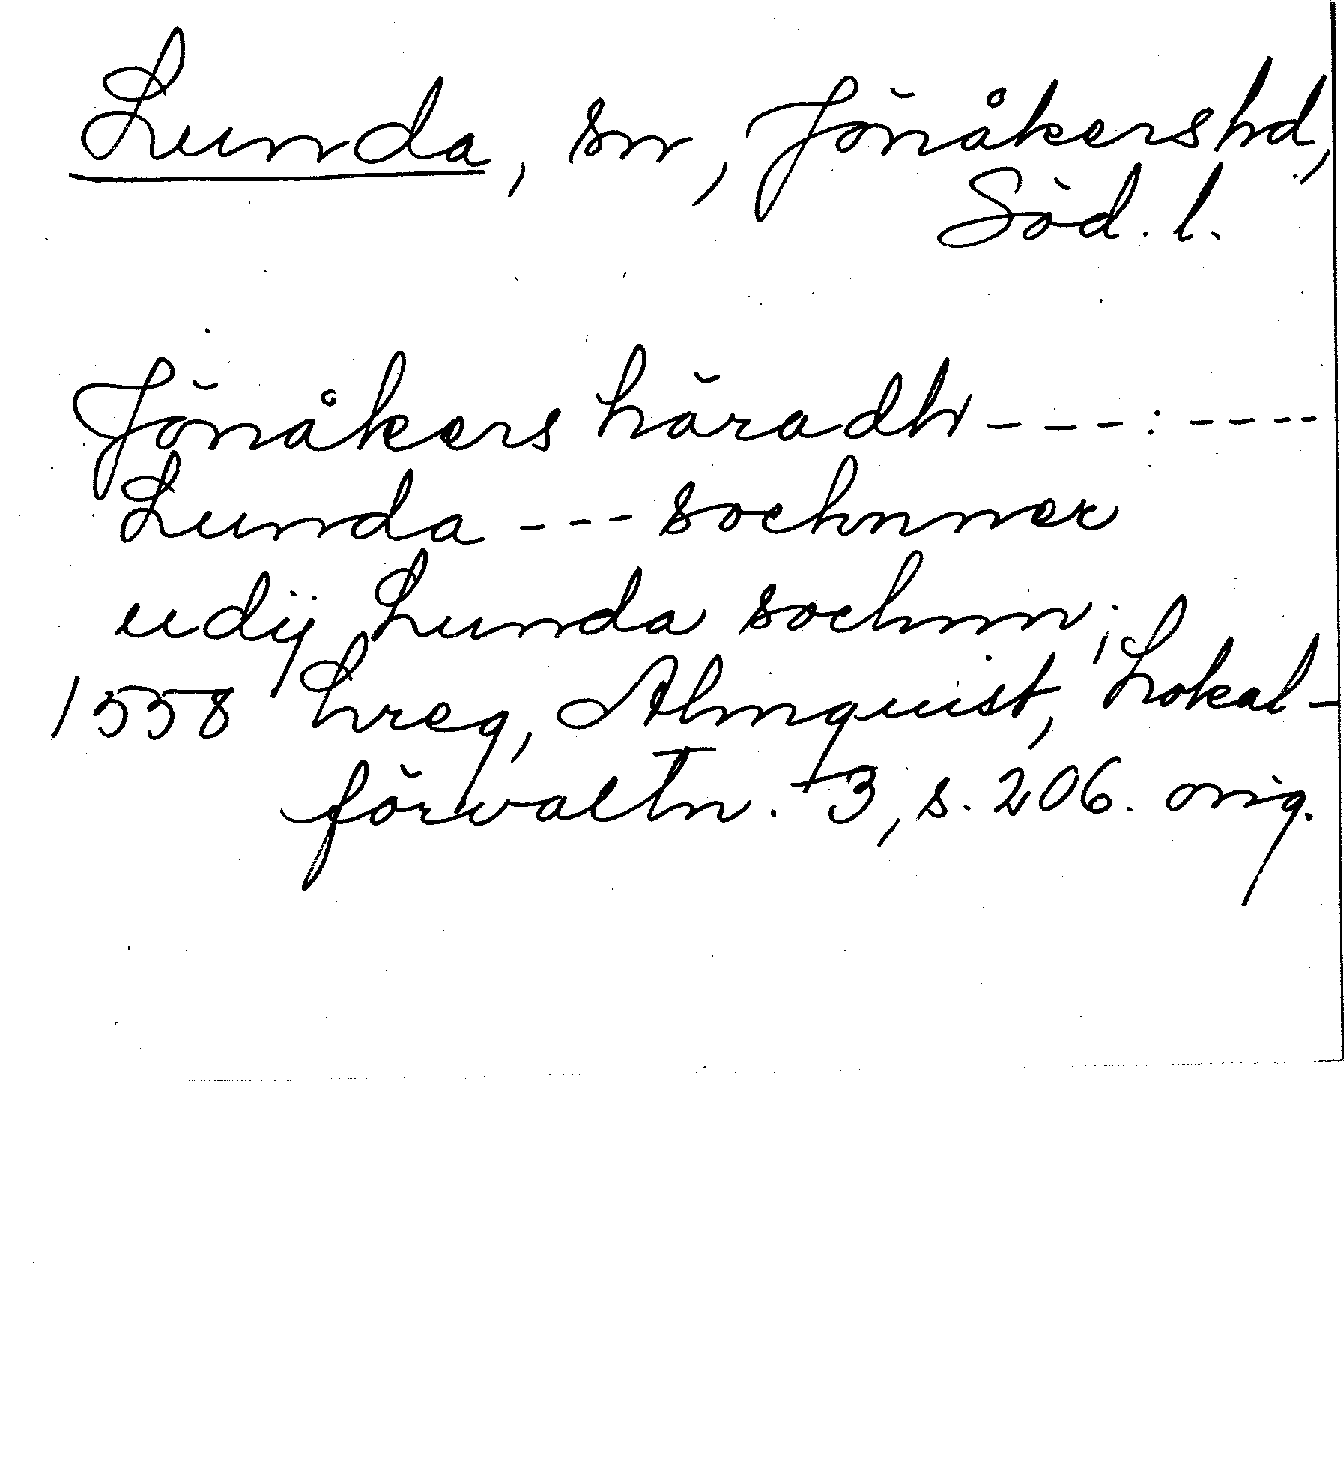 Lunda, sn, Jönåkers hd,
Söd. l.
Jönåkers häradh - - - : - - - -
Lunda - - - sochnner
udij Lunda sochnn;
1558 Lreg, Almquist, Lokal-
förvaltn. 3, s. 206. orig.